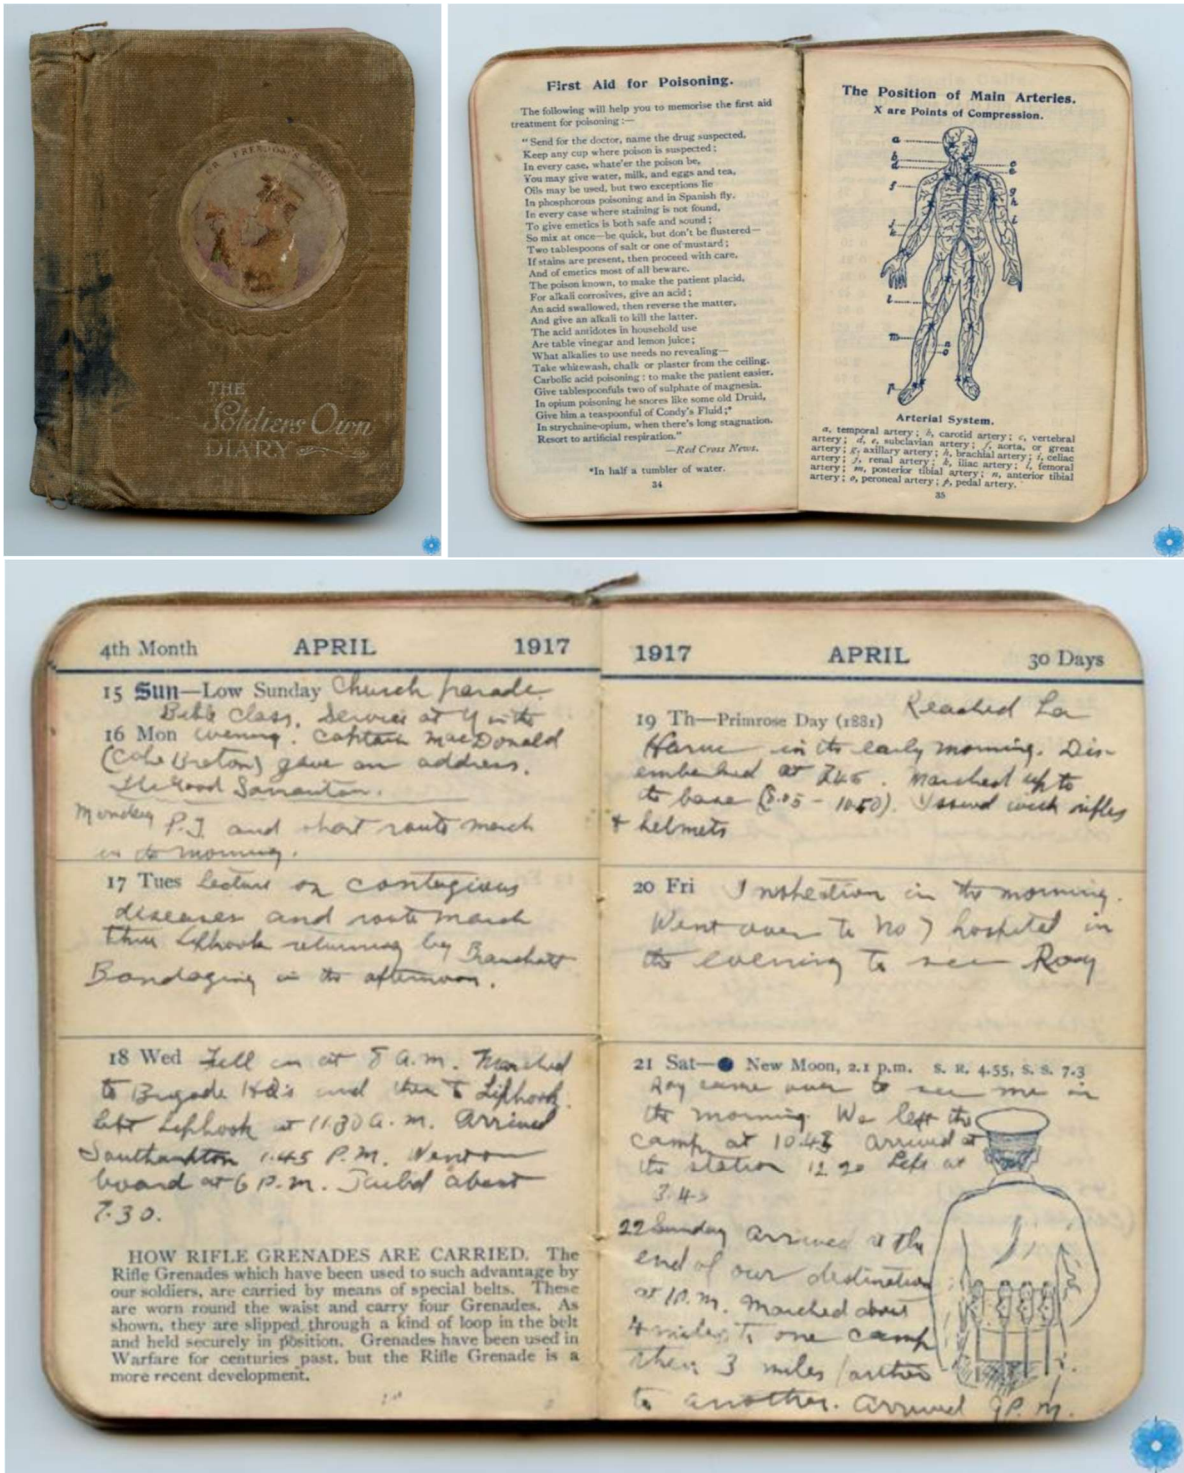 THE
Soldiers Own
DIARY
First Aid for Poisoning.
The following will help you to memorise the first aid
treatment for poisoning :—
"Send for the doctor, name the drug suspected,
Keep any cup where poison is suspected ;
In every case, whate'er the poison be,
You may give water, milk, and eggs and tea,
Oils may be used, but two exceptions lie
In phosphorous poisoning and in Spanish fly.
In every case where staining is not found,
To give emetics is both safe and sound ;
So mix at once—be quick, but don't be flustered—
Two tablespoons of salt or one of mustard ;
If stains are present, then proceed with care,
And of emetics most of all beware.
The poison known, to make the patient placid,
For alkali corrosives, give an acid ;
An acid swallowed, then reverse the matter,
And give an alkali to kill the latter.
The acid antidotes in household use
Are table vinegar and lemon juice ;
What alkalies to use needs no revealing—
Take whitewash, chalk or plaster from the ceiling.
Carbolic acid poisoning : to make the patient easier,
Give tablespoonfuls two of sulphate of magnesia.
In opium poisoning he snores like some old Druid,
Give him a teaspoonful of Condy's Fluid ;*
In strychnine-opium, when there's long stagnation,
Resort to artificial respiration."
—Red Cross News.
*In half a tumbler of water.
34
The Position of Main Arteries.
X are Points of Compression.
Arterial System.
a, temporal artery ; b, carotid artery ; c, vertebral
artery ; d, e, subclavian artery ; f, aorta, or great
artery ; g, axillary artery ; h, brachial artery ; i, celiac
artery ; j, renal artery ; k, iliac artery ; l, femoral
artery ; m, posterior tibial artery ; n, anterior tibial
artery ; o, peroneal artery ; p, pedal artery.
35
4th Month APRIL 1917
15 Sun—Low Sunday Church parade.
Bible Class. Service at in the
16 Mon evening. Captain MacDonald
(Cape Breton) gave an address.
The Good Samaritan.
Monday P.T. and short route march
in the morning.
17 Tues Lecture on contagious
diseases and route march
thru Liphook returning by Bramshott
Bandaging in the afternoon.
18 Wed Fell in at 8 A.m. Marched
to Brigade Hd's and then to Liphook.
left Liphook at 11.30 A.m. Arrived
Southampton 1.45 P.M. Went on
board at 6 P.m. Sailed about
7.30.
HOW RIFLE GRENADES ARE CARRIED. The
Rifle Grenades which have been used to such advantage by
our soldiers, are carried by means of special belts. These
are worn round the waist and carry four Grenades. As
shown, they are slipped through a kind of loop in the belt
and held securely in position. Grenades have been used in
Warfare for centuries past, but the Rifle Grenade is a
more recent development.
1917 APRIL 30 Days
19 Th—Primrose Day (1881) Reached La
Havre in the early morning. Dis-
embarked at 7.45. Marched up to
the base (8.05 - 10.50). Issued with rifles
+ helmets
20 Fri Inspection in the morning.
Went over to No 7 hospital in
the evening to see Roy
21 Sat— New Moon, 2.1 p.m. S. R. 4.55, S. S. 7.3
Roy came over to see me in
the morning. We left the
camp at 10.45 arrived at
the station 12.20 Left at
3.45
22 Sunday Arrived at the
end of our destination
at 1 P.M. Marched about
4 miles to one camp
then 3 miles further
to another. Arrived 9 P.M.